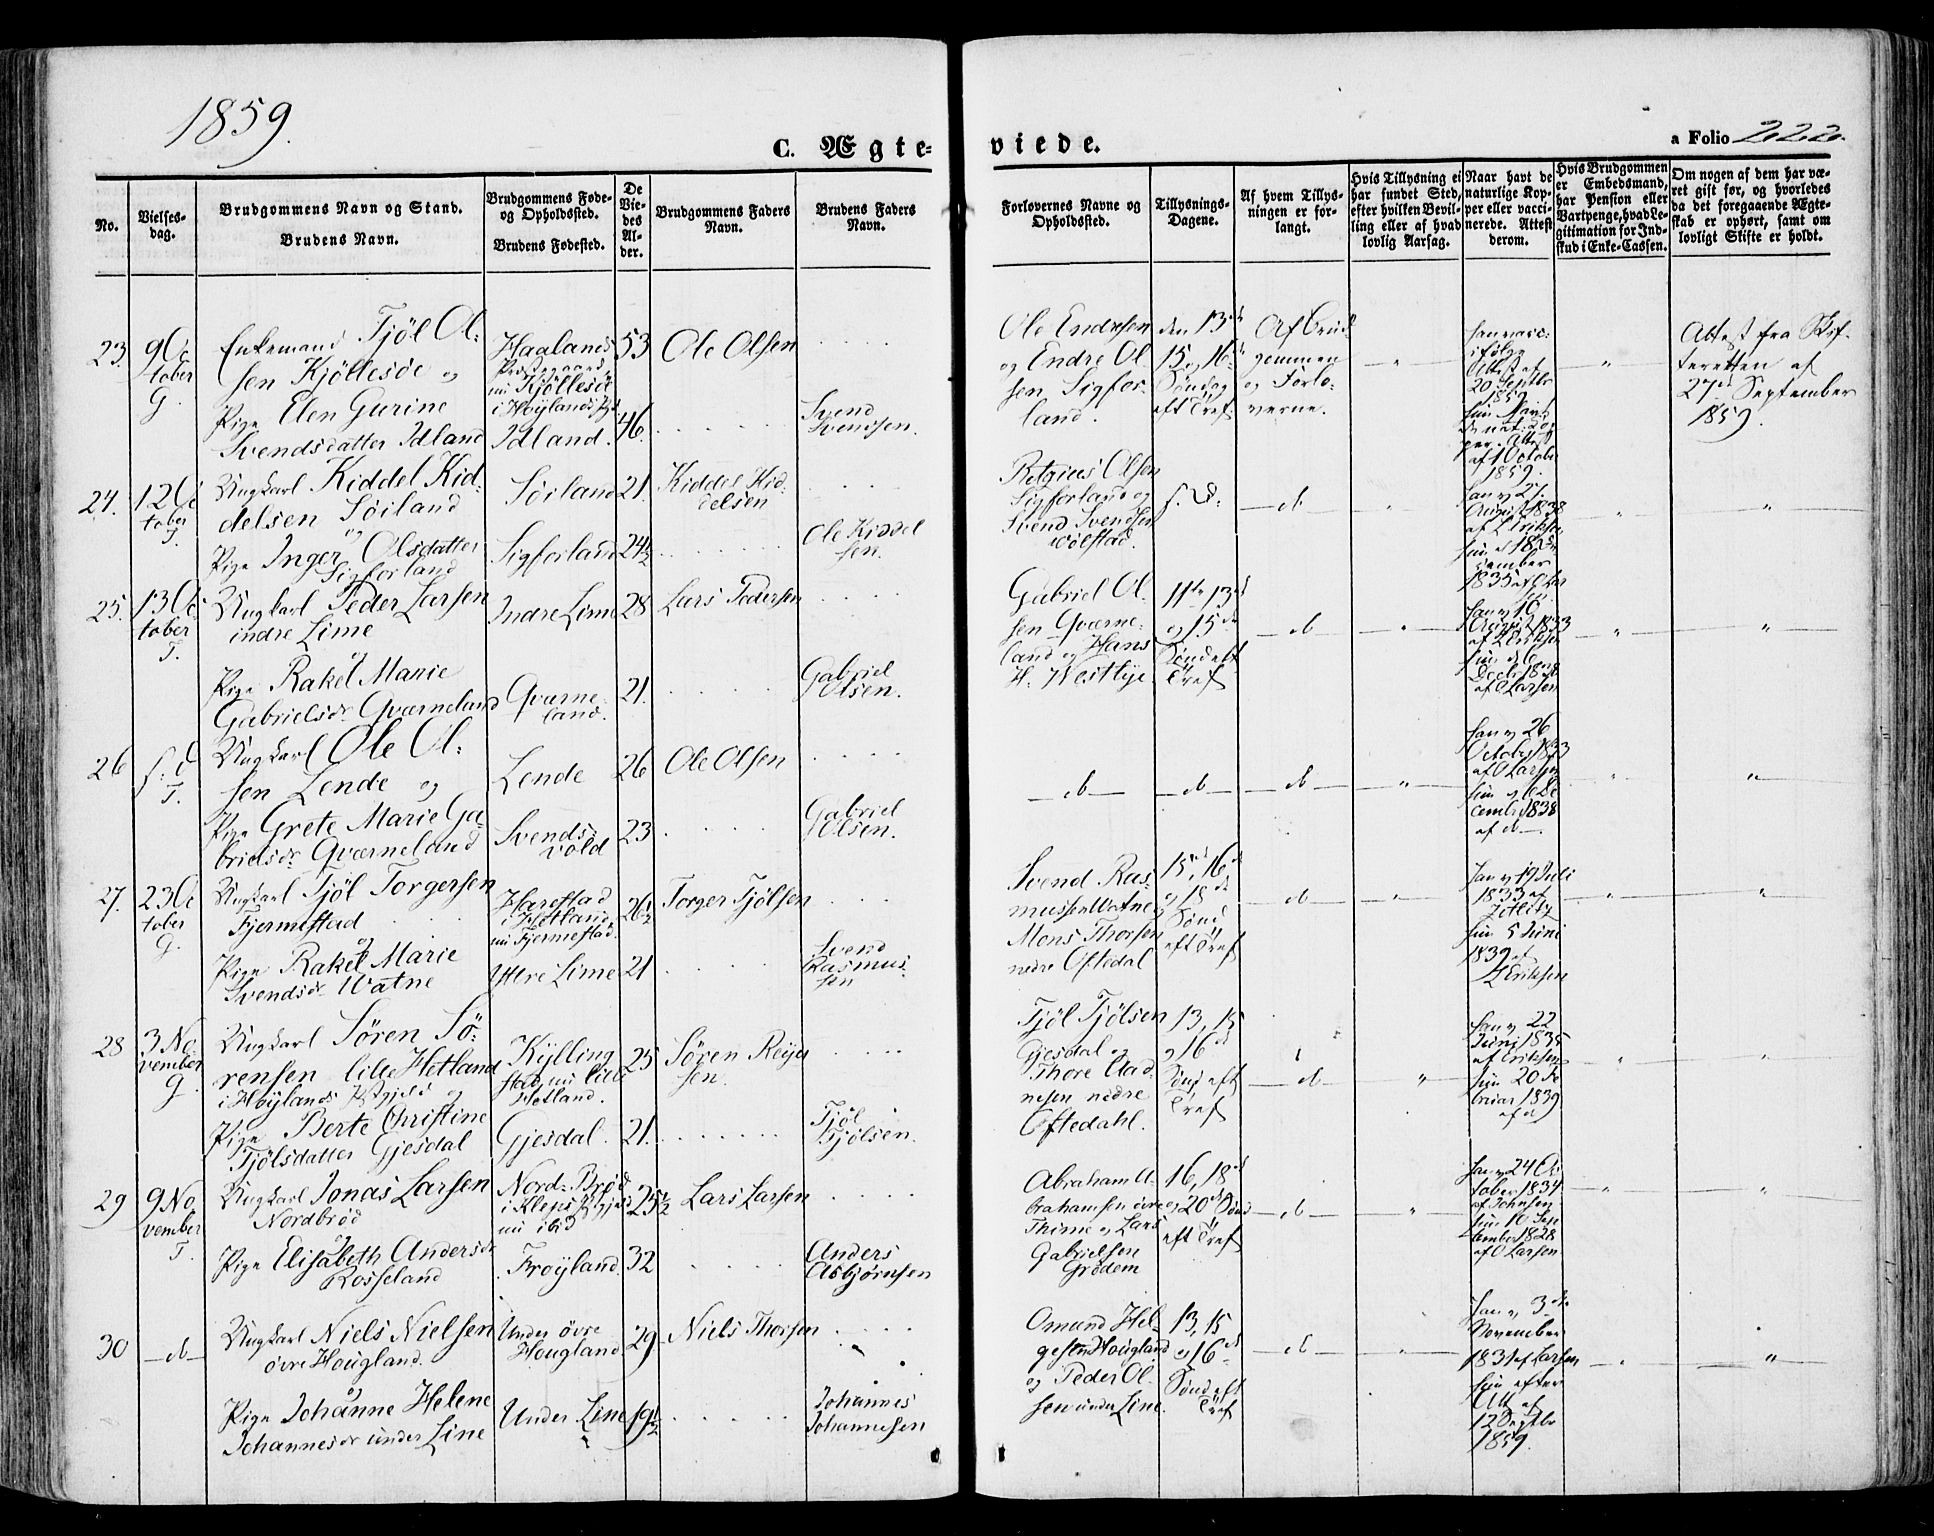 1859.
C. Ægte-
viede.
a Folio 222.
No.
Vielses-
dag.
Brudgommens Navn og Stand.
Brudens Navn.
Brudgommens Føde-
og Opholdsted.
Brudens Fødested.
De
Vie-
des
Al-
der.
Brudgommens Faders
Navn.
Brudens Faders
Navn.
Forlovernes Navne og
Opholdsted.
Tillysnings-
Dagene.
Af hvem Tillys-
ningen er for-
langt.
Hvis Tillysning ei
har fundet Sted,
efter hvilken Bevil-
ling eller af hvad
lovlig Aarsag.
Naar havt de
naturlige Kop-
per eller vacci-
nerede. Attest
derom.
Hvis Brudgommen
er Embedsmand,
har Pension eller
Vartpenge, hvad Le-
gitimation for Ind-
skud i Enke-Cassen.
Om nogen af dem har væ-
ret gift før, og hvorledes
da det foregaaende Ægte-
skab er ophørt, samt om
lovligt Skifte er holdt.
23.
9 Oc
tober
G.
Enkemand Tjöl Ol-
sen Kjöllesde og
Pige Elen Gurine
Svendsdatter Idland
Haaland
nu Kjöllesde
i Höylands
Idland.
53
46.
Ole Olsen
Svend
Svendsen.
Ole Endresen
og Endre Ol
sen Sigfor-
land.
den 13de
15 og 16de
Söndag
eft Tref.
Af Brud
gommen
og Forlo-
verne.
Attest af
20 Septbr
1859
Attest
af 1 October
1859.
Attest fra Skif-
teretten af
27de September
1859.
24.
12 Oc
tober
T.
Ungkarl Kiddel Kid-
delsen Söiland
og
Pige Inger Olsdatter
Sigforland
Söiland
Sigforland
21.
24½
Kiddel Kid-
delsen
Ole Kiddel
sen.
Olsen
Sigforland og
Svend Svendsen
Wölstad.
f. D.
do
han 27
August 1838
af Z Eriksen
hun 18 De
cember
1835 af O Lar
sen
25.
13 Oc
tober
T.
Ungkarl Peder Larsen
indre Lime
og
Pige Rakel Marie
Gabrielsdr Qværneland
Indre Lime
Qværne-
land.
28
21.
Lars Pedersen
Gabriel
Olsen.
Gabriel Ol-
sen Qværne-
land og Hans
H. Westlye
11te 13de
og 15de
Sönd eft
Tref
do
han 10
August 1833
af Z Eriksen
hun d 6
af O Larsen
26
f. D
T.
Ungkarl Ole Ol-
sen Lende og
Pige Grete Marie Ga-
brielsdr Qværneland
Lende
Svends-
vold
26
23
Ole Olsen
Gabriel
Olsen.
do
do
do
han 26
October 1833
af O Larsen
hun 6 De
cembr 1838
af do
27.
23 Oc
tober
G.
Ungkarl Tjöl Torgersen
Fjermestad
og
Pige Rakel Marie
Svendsdr Watne
Harestad
i Hetland
nu Fjermestad
Ytre Lime
26½
21
Torger Tjölsen
Svend
Rasmus-
sen
Svend Ras-
mussen Watne og
Mons Thorsen
nedre Oftedal
15de, 16de
og 18de
Sönd
eft Tref
do
han 19 Juli
1833 af
hun 5 Juni
1839 af
Z Eriksen
28
3 No
vember
G.
Ungkarl Sören Sö-
rensen lille Hetland
i Höylands Pstgjeld og
Pige Berte Christine
Tjölsdatter Gjesdal
Kylling
stad, nu lille
Hetland.
Gjesdal.
25
21.
Sören Reyer
sen.
Tjöl
Tjölsen.
Tjöl Tjölsen
Gjesdal og
Thore Aad-
nesen nedre
Oftedahl.
13, 15
og 16de
Sönd eft
Tref
do
han 22
Juni 1835
af Eriksen
hun 20 Fe
bruar 1839
af d
29
9 No
vember
T.
Ungkarl Jonas Larsen
Nordbrød
og
Pige Elisabeth Andersdr
Rosseland
Nord-Bröd
i Kleps Pstgjeld
nu ibid
Fröyland.
25½
32
Lars Larsen
Anders
Asbjørnsen
Abraham A-
brahamsen övre
Thime og Lars
Gabrielsen
Grödem
16, 18de
og 20de Sönd
eft Tref
do
han 24 Oc
tober 1834
af Johnsen
hun 10 Sep
tember 1828
af O Larsen
30
do
Ungkarl Niels Nielsen
övre Hougland.
og
Pige Johanne Helene
Johannesdr under Line
Under övre
Hougland
Under Line
29
19½
Niels Thorsen
Johannes
Johannesen
Omund Hel-
gesen Hougland
og Peder Ol-
sen under Line.
13, 15
og 16de
Sönd eft
Tref
do
han 3de
November
1831 af Larsen
hun efter
Att af
12 Septbr
1859.